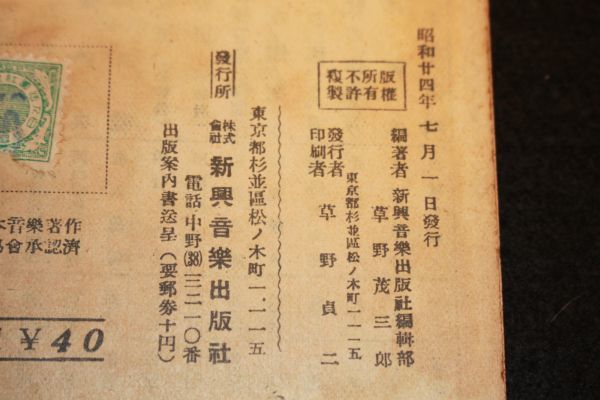 昭和廿四年七月一日發行
編著者 新興音樂出版社編輯部
草野茂三郎
東京都杉並區松ノ木町一一一五
發行者
印刷者 草野貞二
版權所有
不許複製
東京都杉並區松ノ木町一一一五
發行所 株式會社 新興音樂出版社
電話中野(38)三二一〇番
出版案内書送呈(要郵券十円)
音樂著作
會承認濟
¥40